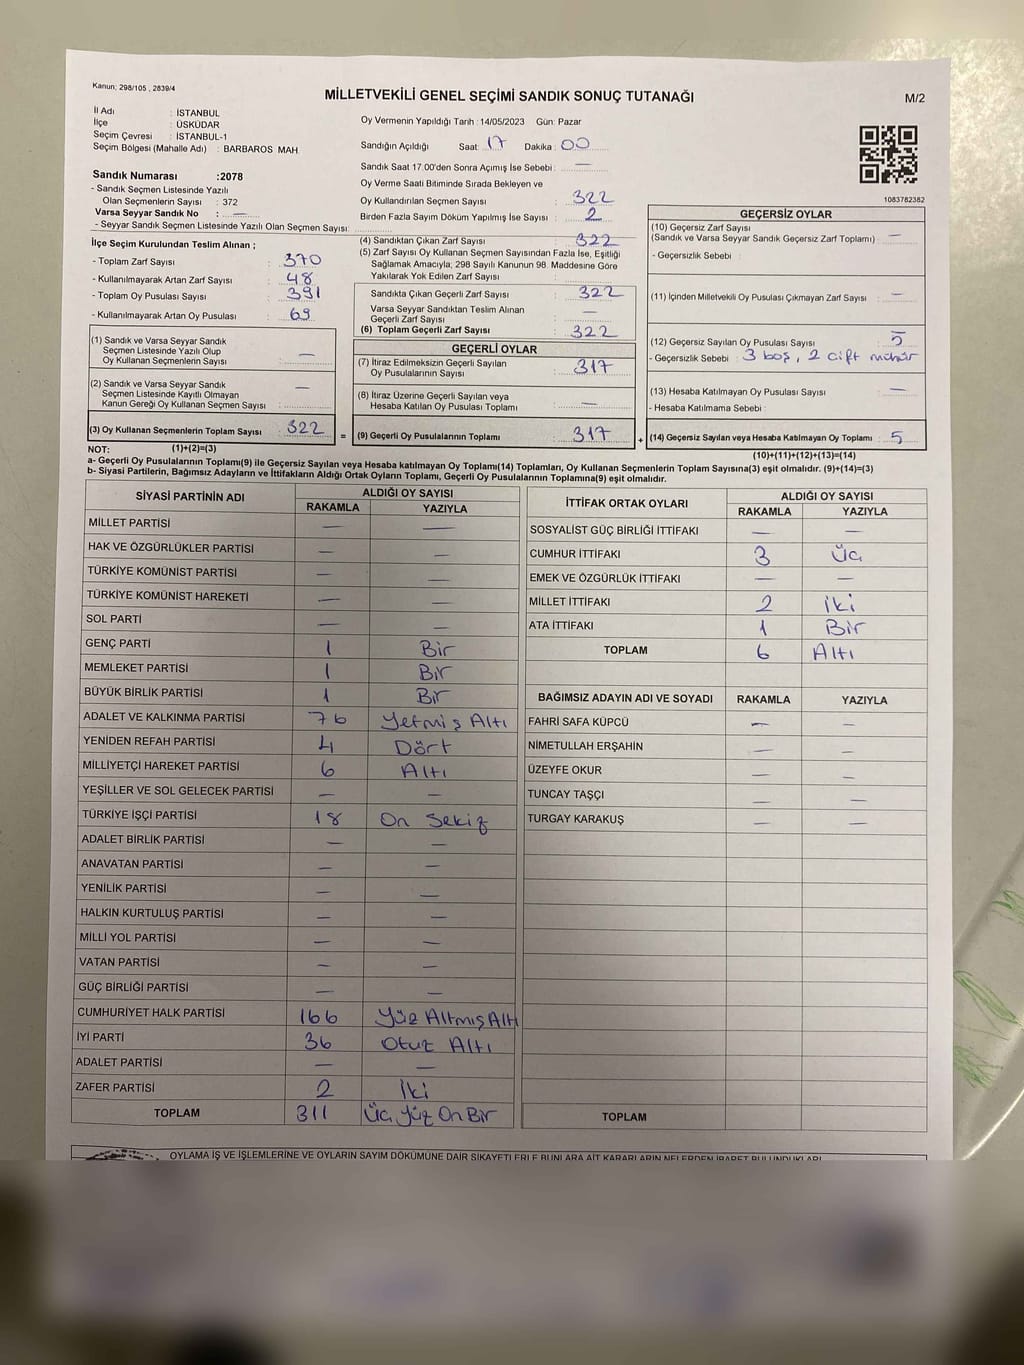 Kanun; 298/105 , 2839/4
MİLLETVEKİLİ GENEL SEÇİMİ SANDIK SONUÇ TUTANAĞI
M/2
İl Adı : İSTANBUL
İlçe : ÜSKÜDAR
Seçim Çevresi : İSTANBUL-1
Seçim Bölgesi (Mahalle Adı) : BARBAROS MAH.
Sandık Numarası :2078
- Sandık Seçmen Listesinde Yazılı
Olan Seçmenlerin Sayısı : 372
Varsa Seyyar Sandık No : —
- Seyyar Sandık Seçmen Listesinde Yazılı Olan Seçmen Sayısı:
Oy Vermenin Yapıldığı Tarih :14/05/2023 Gün: Pazar
Sandığın Açıldığı Saat: 17 Dakika : 00
Sandık Saat 17.00'den Sonra Açımış İse Sebebi : —
Oy Verme Saati Bitiminde Sırada Bekleyen ve
Oy Kullandırılan Seçmen Sayısı : 322
Birden Fazla Sayım Döküm Yapılmış İse Sayısı : 2
1083782382
İlçe Seçim Kurulundan Teslim Alınan ;
- Toplam Zarf Sayısı : 370
- Kullanılmayarak Artan Zarf Sayısı : 48
- Toplam Oy Pusulası Sayısı : 391
- Kullanılmayarak Artan Oy Pusulası : 69
(1) Sandık ve Varsa Seyyar Sandık
Seçmen Listesinde Yazılı Olup
Oy Kullanan Seçmenlerin Sayısı : —
(2) Sandık ve Varsa Seyyar Sandık
Seçmen Listesinde Kayıtlı Olmayan
Kanun Gereği Oy Kullanan Seçmen Sayısı : —
(3) Oy Kullanan Seçmenlerin Toplam Sayısı : 322
(1)+(2)=(3)
(4) Sandıktan Çıkan Zarf Sayısı : 322
(5) Zarf Sayısı Oy Kullanan Seçmen Sayısından Fazla İse, Eşitliği
Sağlamak Amacıyla; 298 Sayılı Kanunun 98. Maddesine Göre
Yakılarak Yok Edilen Zarf Sayısı :
Sandıkta Çıkan Geçerli Zarf Sayısı : 322
Varsa Seyyar Sandıktan Teslim Alınan
Geçerli Zarf Sayısı : —
(6) Toplam Geçerli Zarf Sayısı : 322
GEÇERLİ OYLAR
(7) İtiraz Edilmeksizin Geçerli Sayılan
Oy Pusulalarının Sayısı : 317
(8) İtiraz Üzerine Geçerli Sayılan veya
Hesaba Katılan Oy Pusulası Toplamı : —
= (9) Geçerli Oy Pusulalarının Toplamı : 317
GEÇERSİZ OYLAR
(10) Geçersiz Zarf Sayısı
(Sandık ve Varsa Seyyar Sandık Geçersiz Zarf Toplamı) : —
- Geçersizlik Sebebi :
(11) İçinden Milletvekili Oy Pusulası Çıkmayan Zarf Sayısı : —
(12) Geçersiz Sayılan Oy Pusulası Sayısı : 5
- Geçersizlik Sebebi : 3 boş, 2 çift mühür
(13) Hesaba Katılmayan Oy Pusulası Sayısı : —
- Hesaba Katılmama Sebebi :
+ (14) Geçersiz Sayılan veya Hesaba Katılmayan Oy Toplamı : 5
(10)+(11)+(12)+(13)=(14)
NOT:
a- Geçerli Oy Pusulaları Toplamı(9) ile Geçersiz Sayılan veya Hesaba katılmayan Oy Toplamı(14) Toplamları, Oy Kullanan Seçmenlerin Toplam Sayısına(3) eşit olmalıdır. (9)+(14)=(3)
b- Siyasi Partilerin, Bağımsız Adayların ve İttifakların Aldığı Ortak Oyların Toplamı, Geçerli Oy Pusulalarının Toplamına(9) eşit olmalıdır.
SİYASİ PARTİNİN ADI ALDIĞI OY SAYISI
RAKAMLA YAZIYLA
MİLLET PARTİSİ — —
HAK VE ÖZGÜRLÜKLER PARTİSİ — —
TÜRKİYE KOMÜNİST PARTİSİ — —
TÜRKİYE KOMÜNİST HAREKETİ — —
SOL PARTİ — —
GENÇ PARTİ 1 Bir
MEMLEKET PARTİSİ 1 Bir
BÜYÜK BİRLİK PARTİSİ 1 Bir
ADALET VE KALKINMA PARTİSİ 76 Yetmiş Altı
YENİDEN REFAH PARTİSİ 4 Dört
MİLLİYETÇİ HAREKET PARTİSİ 6 Altı
YEŞİLLER VE SOL GELECEK PARTİSİ — —
TÜRKİYE İŞÇİ PARTİSİ 18 On Sekiz
ADALET BİRLİK PARTİSİ — —
ANAVATAN PARTİSİ — —
YENİLİK PARTİSİ — —
HALKIN KURTULUŞ PARTİSİ — —
MİLLİ YOL PARTİSİ — —
VATAN PARTİSİ — —
GÜÇ BİRLİĞİ PARTİSİ — —
CUMHURİYET HALK PARTİSİ 166 Yüz Altmış Altı
İYİ PARTİ 36 Otuz Altı
ADALET PARTİSİ — —
ZAFER PARTİSİ 2 İki
TOPLAM 311 Üç Yüz On Bir
İTTİFAK ORTAK OYLARI ALDIĞI OY SAYISI
RAKAMLA YAZIYLA
SOSYALİST GÜÇ BİRLİĞİ İTTİFAKI — —
CUMHUR İTTİFAKI 3 Üç
EMEK VE ÖZGÜRLÜK İTTİFAKI — —
MİLLET İTTİFAKI 2 İki
ATA İTTİFAKI 1 Bir
TOPLAM 6 Altı
BAĞIMSIZ ADAYIN ADI VE SOYADI RAKAMLA YAZIYLA
FAHRİ SAFA KÜPCÜ — —
NİMETULLAH ERŞAHİN — —
ÜZEYFE OKUR — —
TUNCAY TAŞÇI — —
TURGAY KARAKUŞ — —
TOPLAM
OYLAMA İŞ VE İŞLEMLERİNE VE OYLARIN SAYIM DÖKÜMÜNE DAİR ŞİKAYETLERLE BUNLARA AİT KARARLARIN NELERDEN İBARET BULUNDUKLARI